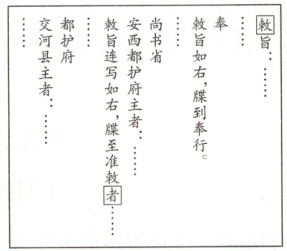 敕旨：……
……
奉
敕旨如右，牒到奉行。
……
尚书省
安西都护府主者：……
敕旨连写如右，牒至准敕者……
……
都护府
交河县主者：……
……